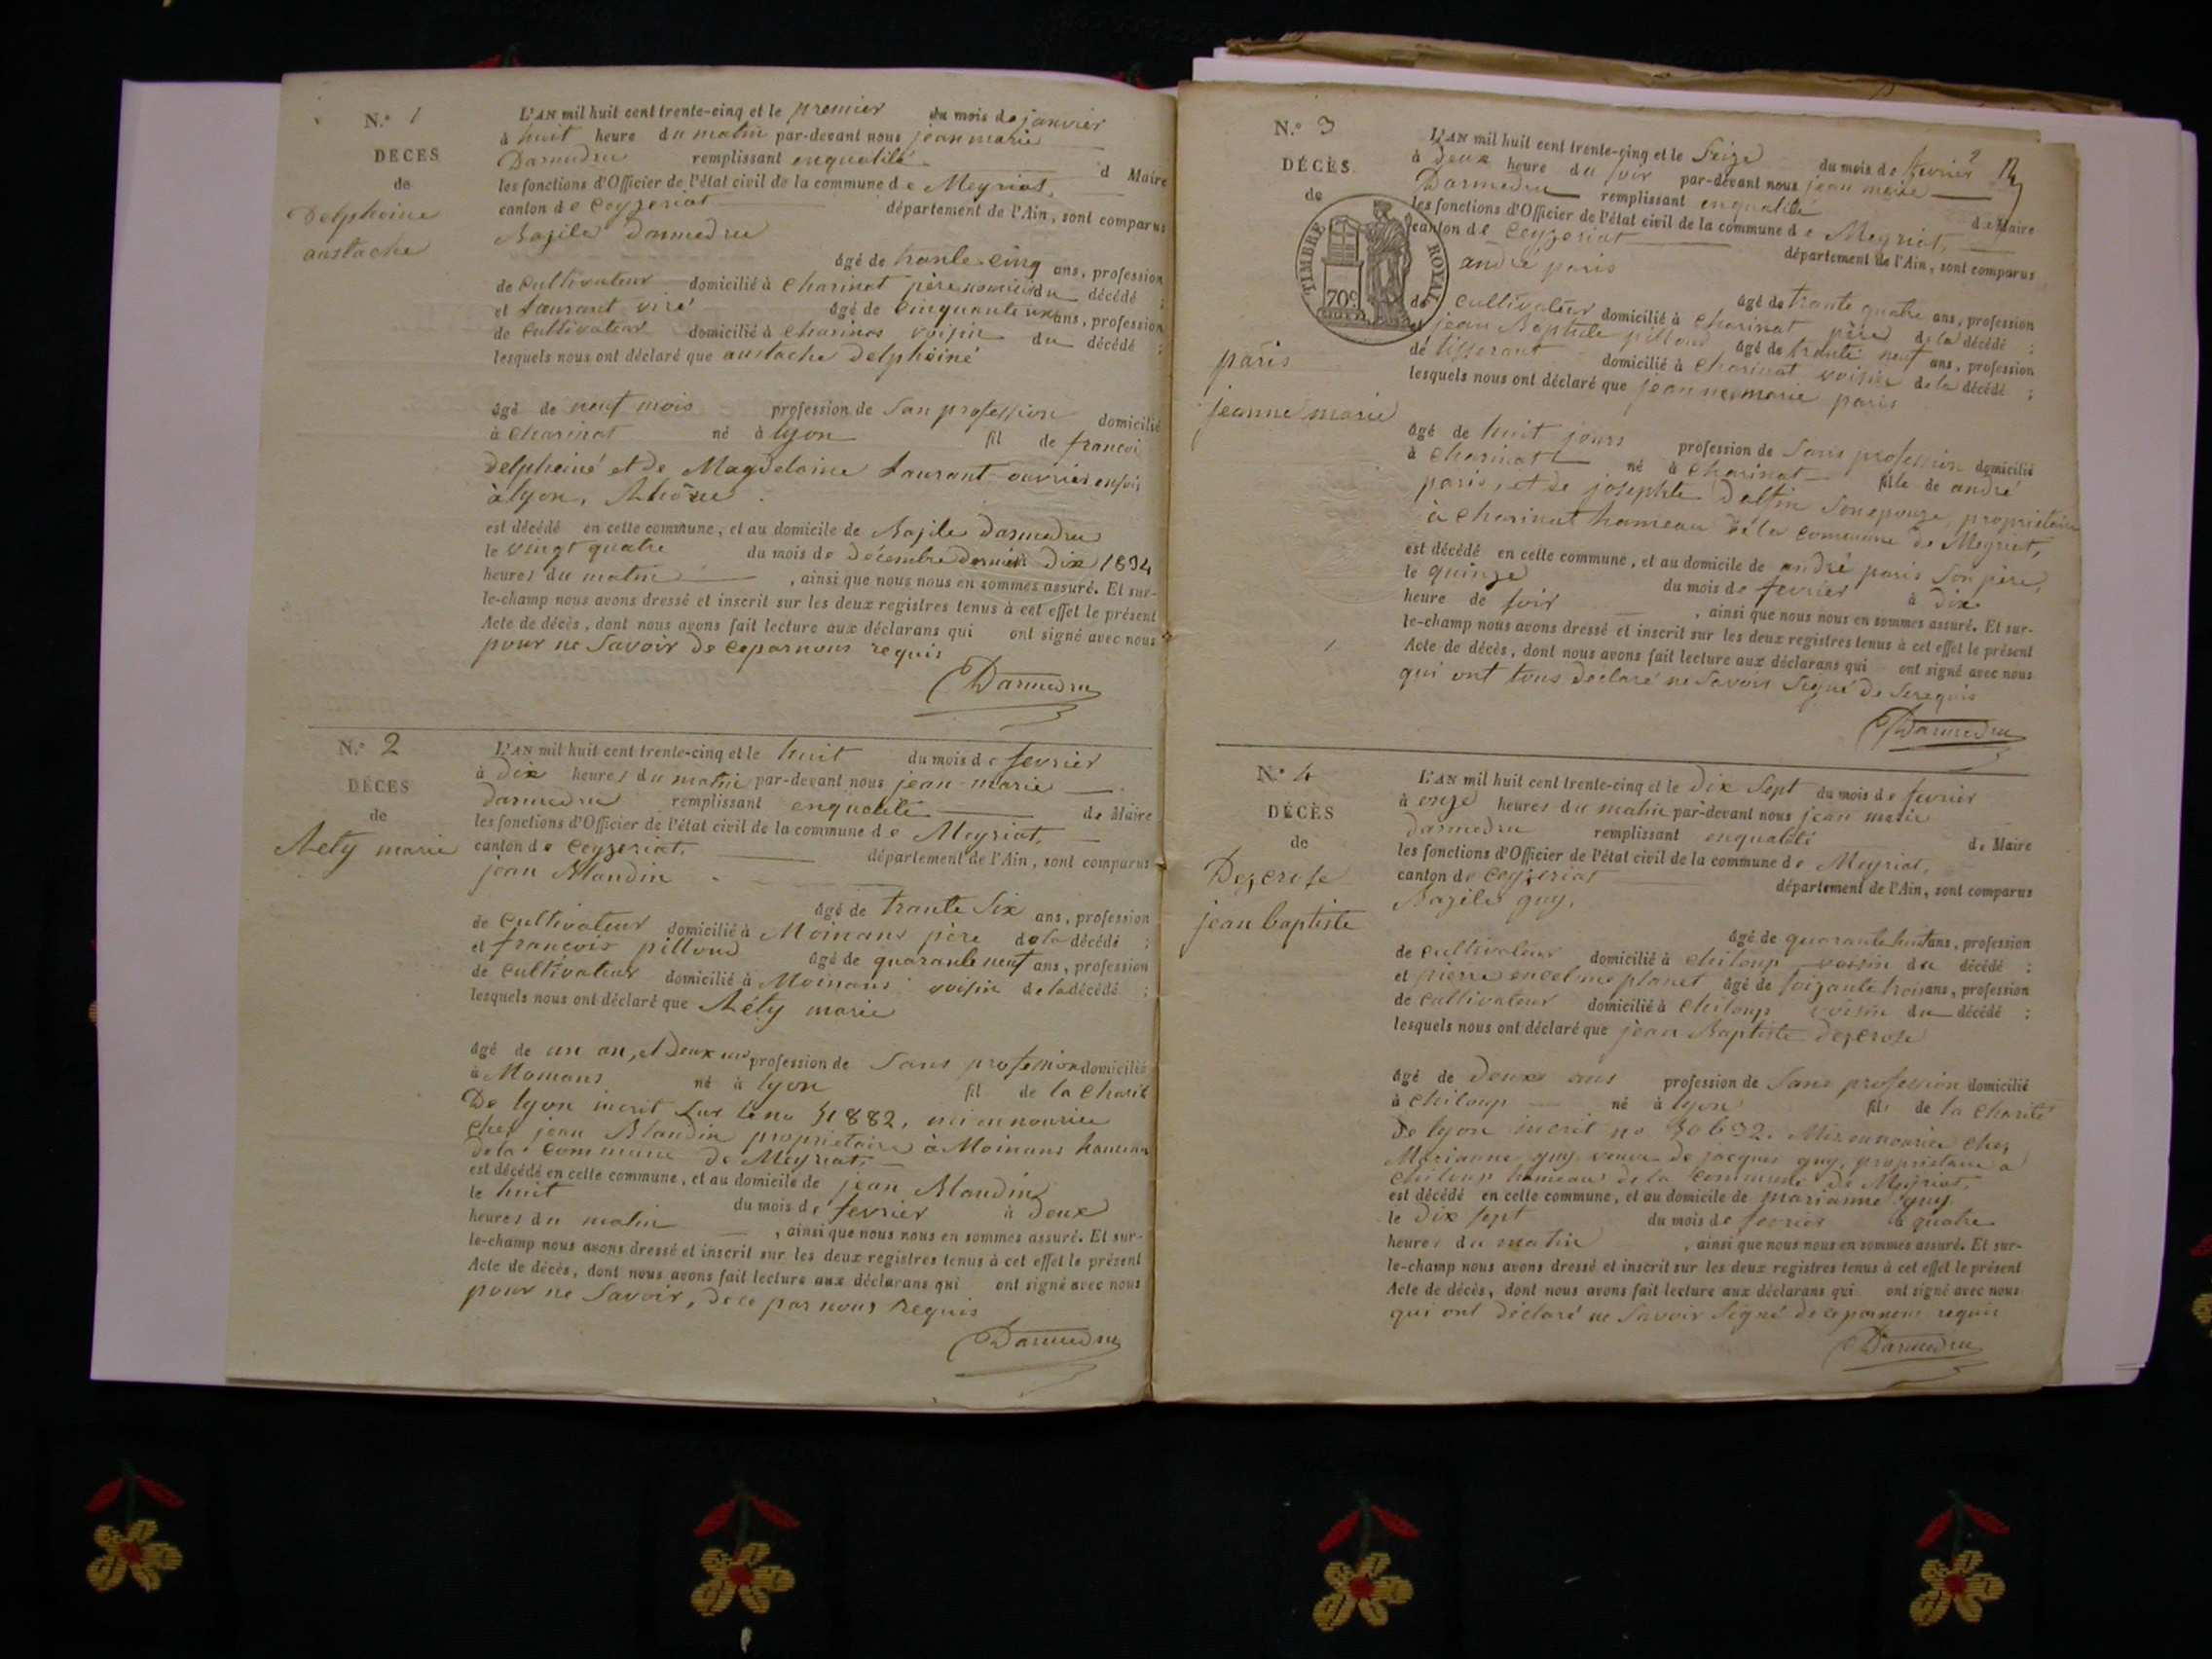 N.º 1
DECES
de
Delpheine
austache
L'AN mil huit cent trente-cinq et le premier du mois de janvier
à huit heure du matin par-devant nous jean marie
Darmedru remplissant enqualité d Maire
les fonctions d'Officier de l'état civil de la commune de Meyriat,
canton de Ceyzeriat département de l'Ain, sont comparus
Bazile Darmedru
âgé de trante-cinq ans, profession
de cultivateur domicilié à Charinat père du décédé ;
et Laurant viré âgé de cinquante ans, profession
de cultivateur domicilié à Charinas voisin du décédé ;
lesquels nous ont déclaré que austache Delpheiné
âgé de neuf mois profession de San profession domicilié
à Charinat né à lyon fil de francoi
delpheiné et de Magdelaine Laurant ouvrier
à lyon, Rhône
est décédé en cette commune, et au domicile de Bazile Darmedru
le vingt quatre du mois de Décembre dernier Dix 1834
heures du matin, ainsi que nous nous en sommes assuré. Et sur-
le-champ nous avons dressé et inscrit sur les deux registres tenus à cet effet le présent
Acte de décès, dont nous avons fait lecture aux déclarans qui ont signé avec nous
pour ne Savoir de ceparnous requis
Darmedru
N.º 2
DÉCES
de
Réty marie
L'AN mil huit cent trente-cinq et le huit du mois de fevrier
à dix heures du matin par-devant nous jean-marie
Darmedru remplissant enqualité de Maire
les fonctions d'Officier de l'état civil de la commune de Meyriat,
canton de Ceyzeriat, département de l'Ain, sont comparus
jean Blandin
âgé de trante Six ans, profession
de cultivateur domicilié à Moinans père de la décédé ;
et françois pilloud âgé de quarante neuf ans, profession
de cultivateur domicilié à Moinans voisin de la décédé ;
lesquels nous ont déclaré que Réty marie
âgé de un an, et deux profession de Sans profession domicilié
à Momans né à lyon fil de la charité
De lyon incrit Sur le no 31882, mi en nourice
chez jean Blandin propriétaire à Moinans hameau
de la commune de Meyriat,
est décédé en cette commune, et au domicile de jean Blandin
le huit du mois de fevrier à deux
heures du matin, ainsi que nous nous en sommes assuré. Et sur-
le-champ nous avons dressé et inscrit sur les deux registres tenus à cet effet le présent
Acte de décès, dont nous avons fait lecture aux déclarans qui ont signé avec nous
pour ne Savoir, de ce par nous Requis
Darmedru
N.º 3
DÉCÈS
de
TIMBRE ROYAL
70c
paris
jeanne marie
L'AN mil huit cent trente-cinq et le Seize du mois de fevrier
à deux heure du soir par-devant nous jean marie
Darmedru remplissant enqualité de Maire
les fonctions d'Officier de l'état civil de la commune de Meyriat,
canton de Ceyzeriat département de l'Ain, sont comparus
andré paris
âgé de trante quatre ans, profession
de cultivateur domicilié à Charinat père de la décédé ;
et jean Baptiste pilloud âgé de trante neuf ans, profession
de tisserant domicilié à Charinat voisin de la décédé ;
lesquels nous ont déclaré que jeanne marie paris
âgé de huit jours profession de Sans profession domicilié
à Charinat né à Charinat file de andré
paris, et de josephte Dalfin Sonepouze, propriétaire
à Charinat hameau de la commune de Meyriat,
est décédé en cette commune, et au domicile de andré paris Son père,
le quinze du mois de fevrier à dix
heure de soir, ainsi que nous nous en sommes assuré. Et sur-
le-champ nous avons dressé et inscrit sur les deux registres tenus à cet effet le présent
Acte de décès, dont nous avons fait lecture aux déclarans qui ont signé avec nous
qui ont tous declaré ne Savoir Signé de Serequis
Darmedru
N.º 4
DÉCÈS
de
Dezcrose
jean baptiste
L'AN mil huit cent trente-cinq et le dix Sept du mois de fevrier
à onze heures du matin par-devant nous jean marie
Darmedru remplissant enqualité de Maire
les fonctions d'Officier de l'état civil de la commune de Meyriat,
canton de Ceyzeriat département de l'Ain, sont comparus
Bazile guy,
âgé de quarante huit ans, profession
de cultivateur domicilié à Chiloup voisin du décédé ;
et pierre encelme planet âgé de soizante trois ans, profession
de cultivateur domicilié à Chiloup voisin du décédé ;
lesquels nous ont déclaré que jean Baptiste dezcrose
âgé de deux ans profession de Sans profession domicilié
à Chiloup né à lyon fils de la charité
De lyon incrit no 30632. Mis en nourice chez
Marianne guy veuve de jacques guy, propriétaire à
Chiloup hameau de la commune de Meyriat,
est décédé en cette commune, et au domicile de marianne guy
le dix sept du mois de fevrier à quatre
heures du matin, ainsi que nous nous en sommes assuré. Et sur-
le-champ nous avons dressé et inscrit sur les deux registres tenus à cet effet le présent
Acte de décès, dont nous avons fait lecture aux déclarans qui ont signé avec nous
qui ont déclaré ne Savoir Signé de ceparnous requis
Darmedru